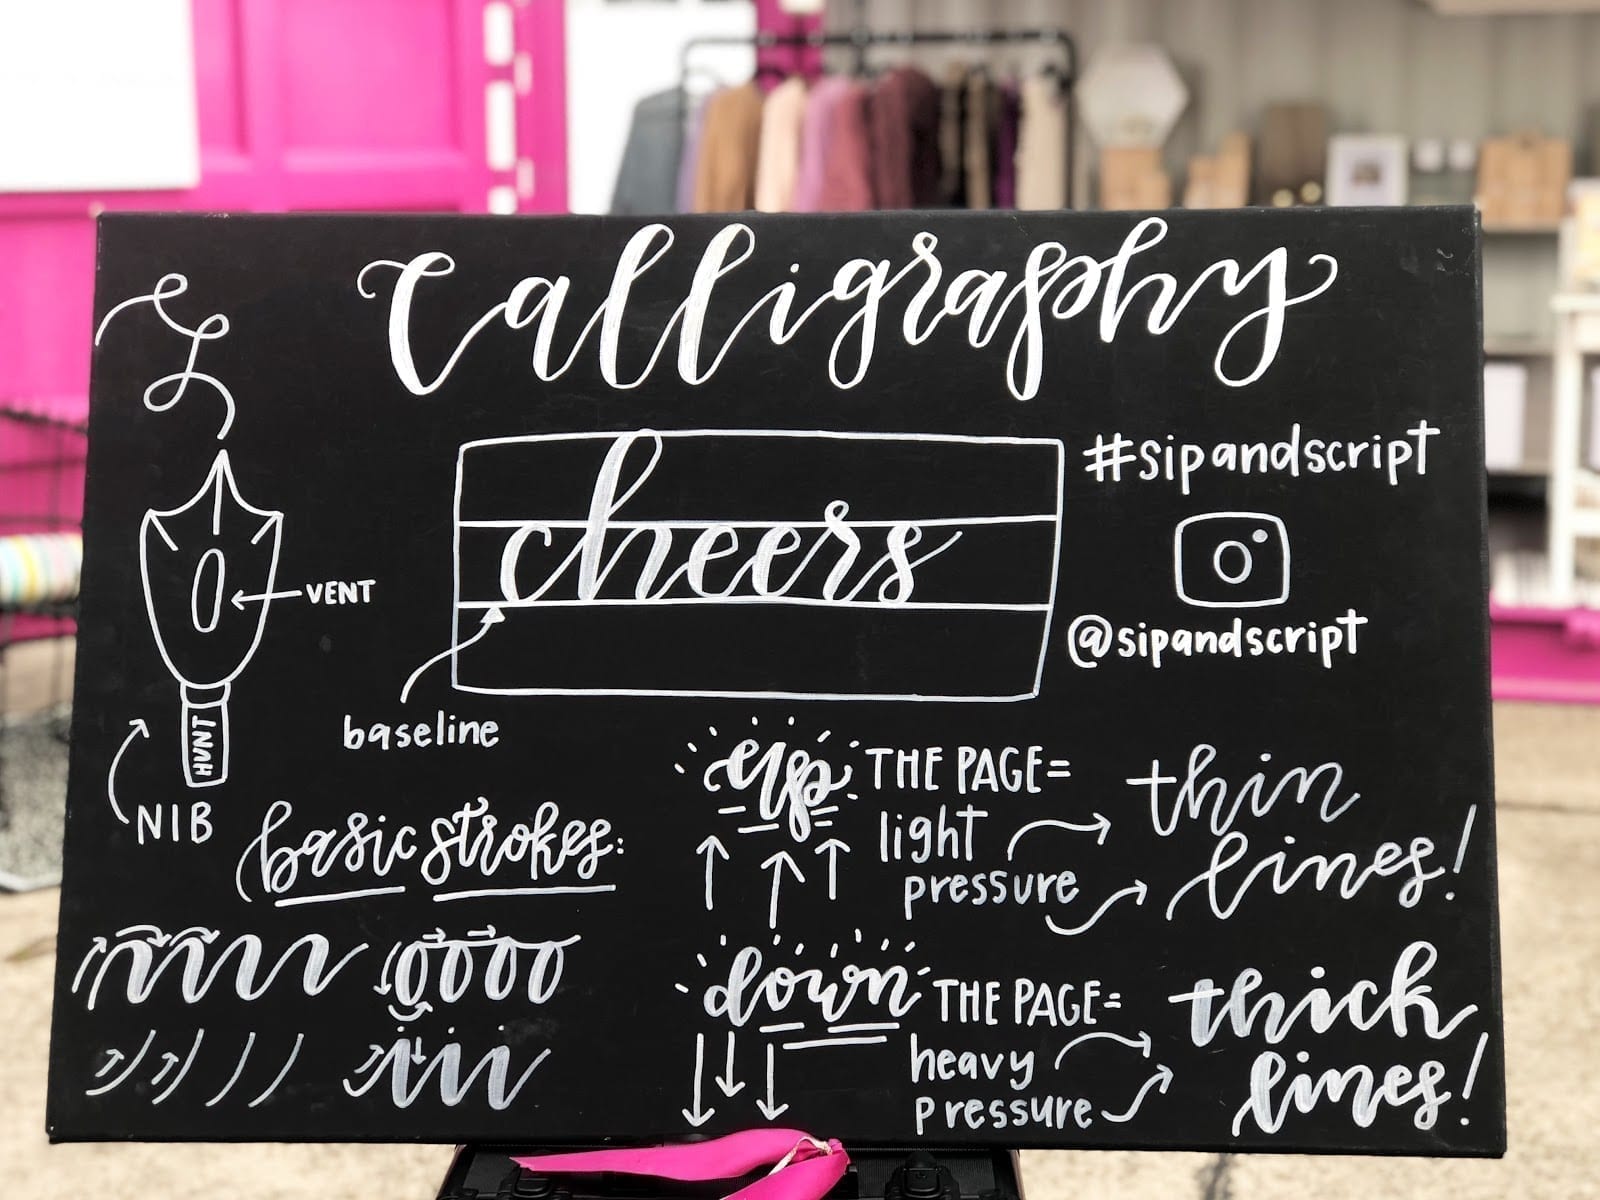 Calligraphy
cheers
baseline
VENT
HUNT
NIB
#sipandscript
@sipandscript
basic strokes:
up THE PAGE=
light
pressure
thin
lines!
down THE PAGE=
heavy
pressure
thick
lines!